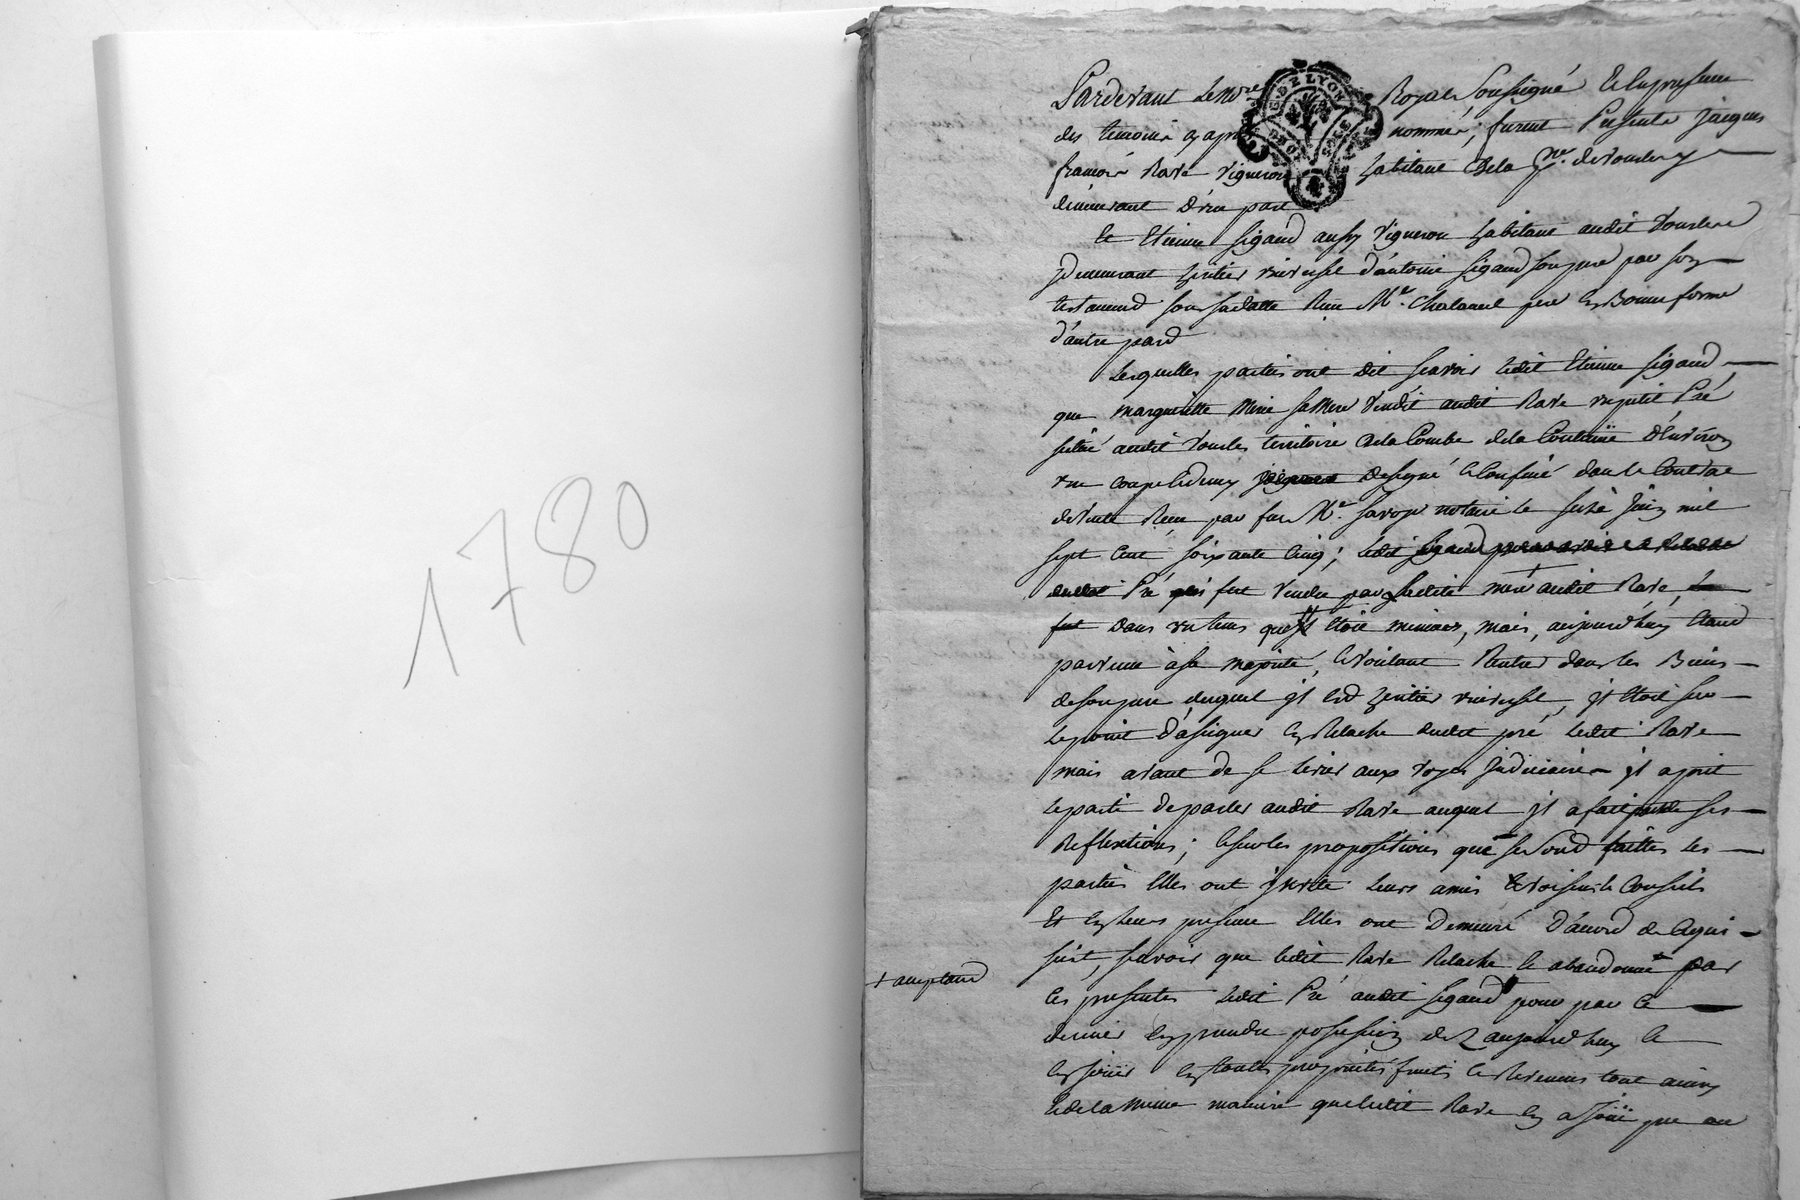 1780
GEN. DE LYON
Pardevant le no.re Royal soussigné et en presence
des temoins cy apres nommés, furent Presents Jacques
françois Rave vigneron habitant de la p.sse de vourles y
demeurant d'une part
Et Etienne sigaud aussy vigneron habitant audit vourles
y demeurant heritier universel d'antoine sigaud son pere par son
testament sous sa datte Reçu M.e Chalamel pere en Bonne forme
d'autre pard
Lesquelles parties ont dit sçavoir ledit Etienne sigaud
que marguerite mere vendit audit Rave un petit Pré
situé audit vourles territoire de la Combe de la d'environ
une coupe et demy designé et Confiné dans le Contrat
de vente Reçu par feu M.e notaire le seize Juin mil
sept cent soixante cinq; ledit sigaud
Pré fut vendu par ladite audit Rave,
fut dans un tems qu'il etoit mineur, mais, aujourd'huy etand
parvenu à sa majorité, et voulant Rentrer dans les Biens
de son pere duquel il est heritier universel, il etoit sur
le point d'assigner en Relache dudit pré ledit Rave
mais avant de se livrer aux voyes judiciaires il a prit
le parti de parler audit Rave auquel il a fait ses
Reflextions; et sur les propositions que se sond faittes les
parties Elles ont invité leurs amis et Conseils
Et en leurs presence Elles ont Demeuré d'accord de ce qui
suit, sçavoir que ledit Rave Relache et abandonne par
+ acceptand
ces presentes ledit Pré audit sigaud + pour par ce
dernier en prendre possession dez aujourd'huy et
en jouir en toutes proprietés fruits et Revenus tout ainsy
et de la meme maniere que ledit Rave en a joüi pu ou